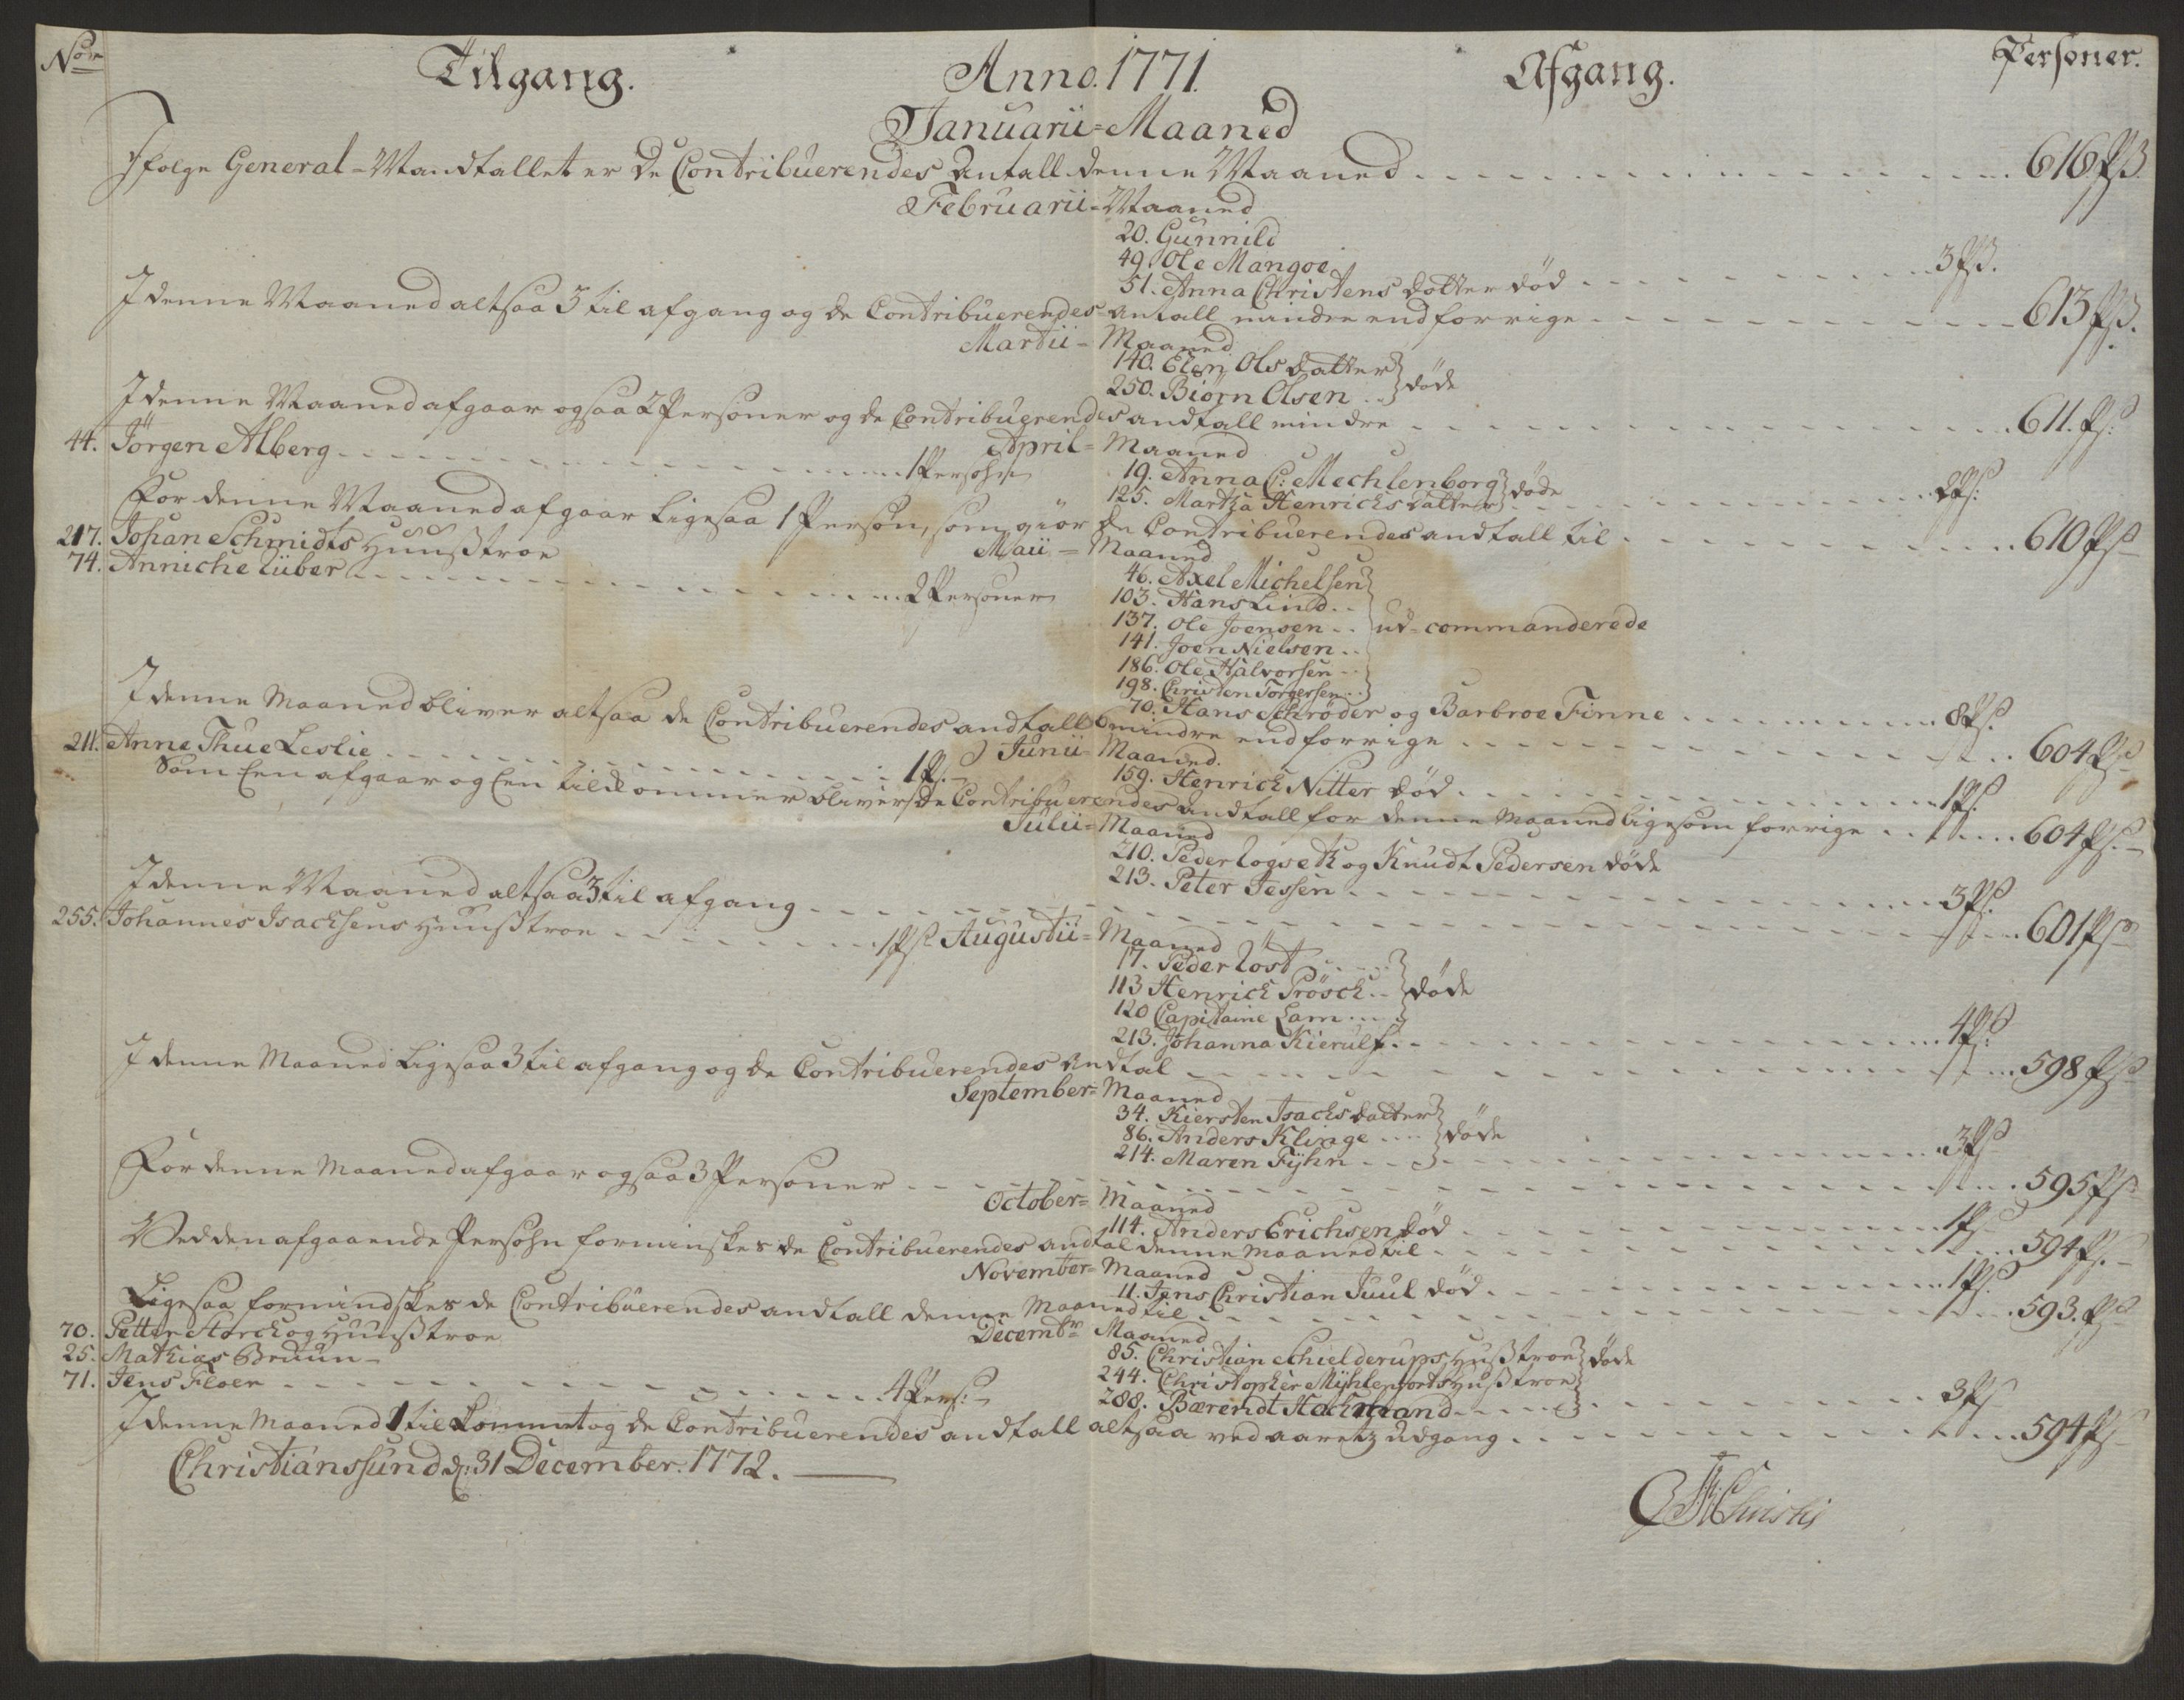 No
Tilgang. Anno. 1771. Afgang. Personer.
Januarii=Maaned
Ifølge General=Mandtallet er de Contribuerendes Antall denne Maaned 616 Ps.
Februarii=Maaned
20. Gunnild
49. Ole Mangoe
51. Anna Christens datter død 3 Ps.
I denne Maaned altsaa 3 til afgang og de Contribuerendes antall mindre end forrige 613 Ps.
Martii=Maaned
140. Elen Ols datter
250. Biørn Olsen } døde
I denne Maaned afgaar ogsaa 2 Personer og de Contribuerendes andtall mindre 611. Ps:
April=Maaned
44. Jörgen Alberg 1 Persohn
19. Anna C: Mechlenborg } døde
125. Martha Henrichs datter 2 Ps:
For denne Maaned afgaar ligesaa 1 Person, som giör de Contribuerendes andtall til 610 Ps
Maii=Maaned
217. Johan Schmidts Huustroe
74. Anniche Lüber 2 Personer
46. Axel Michelsen
103. Hans Lind
137. Ole Joensen } ud=commanderede
141. Joen Nielsen
186. Ole Halvorsen
198. Christen Torgersen
70. Hans Schrøder og Barbroe Finne 8 Ps.
I denne Maaned bliver altsaa de Contribuerendes andtall 6 mindre end forrige 604 Ps
Junii=Maaned.
211. Anne Thue Leslie 1 P.
159. Henrich Nitter død 1 Ps.
Som Een afgaar og Een tilkommer bliver de Contribuerendes andtall for denne Maaned ligesom forrige 604 Ps.
Julii=Maaned
210. Peder Logseth og Knudt Pedersen døde
213. Peter Jessen 3 Ps.
I denne Maaned altsaa 3 til afgang 601 Ps
Augustii=Maaned
255. Johannes Isachsens Huustroe 1 Ps.
17. Peder Löst
113 Henrich Prösch } døde
120 Capitaine Lam
213. Johanna Kierulf 4 Ps:
I denne Maaned ligesaa 3 til afgang og de Contribuerendes Andtal 598 Ps
September=Maaned
34. Kiersten Isachs datter
86. Anders Klinge } døde
214. Maren Fyhn 3 Ps
For denne Maaned afgaar ogsaa 3 Personer 595 Ps
October=Maaned
114. Anders Erichsen død 1 Ps
Ved den afgaaende Persohn forminskes de Contribuerendes andtal denne Maaned til 594 Ps.
November=Maaned
11. Jens Christian Juul død 1 Ps.
Ligesaa formindskes de Contribuerendes andtall denne Maaned til 593. Ps
Decembr Maaned
70. Petter Storch og Huustroe
25. Mathias Bruun
71. Jens Floer 4 Pers:
85. Christian Schielderups Hustroe } døde
244. Christopher Mÿhlenforts Hustroe
288. Bærendt Hachmand 3 Ps
I denne Maaned 1 tilkommet og de Contribuerendes andtall altsaa ved aaretz udgang 594 Ps
Christianssund d: 31 December. 1772.
Christie